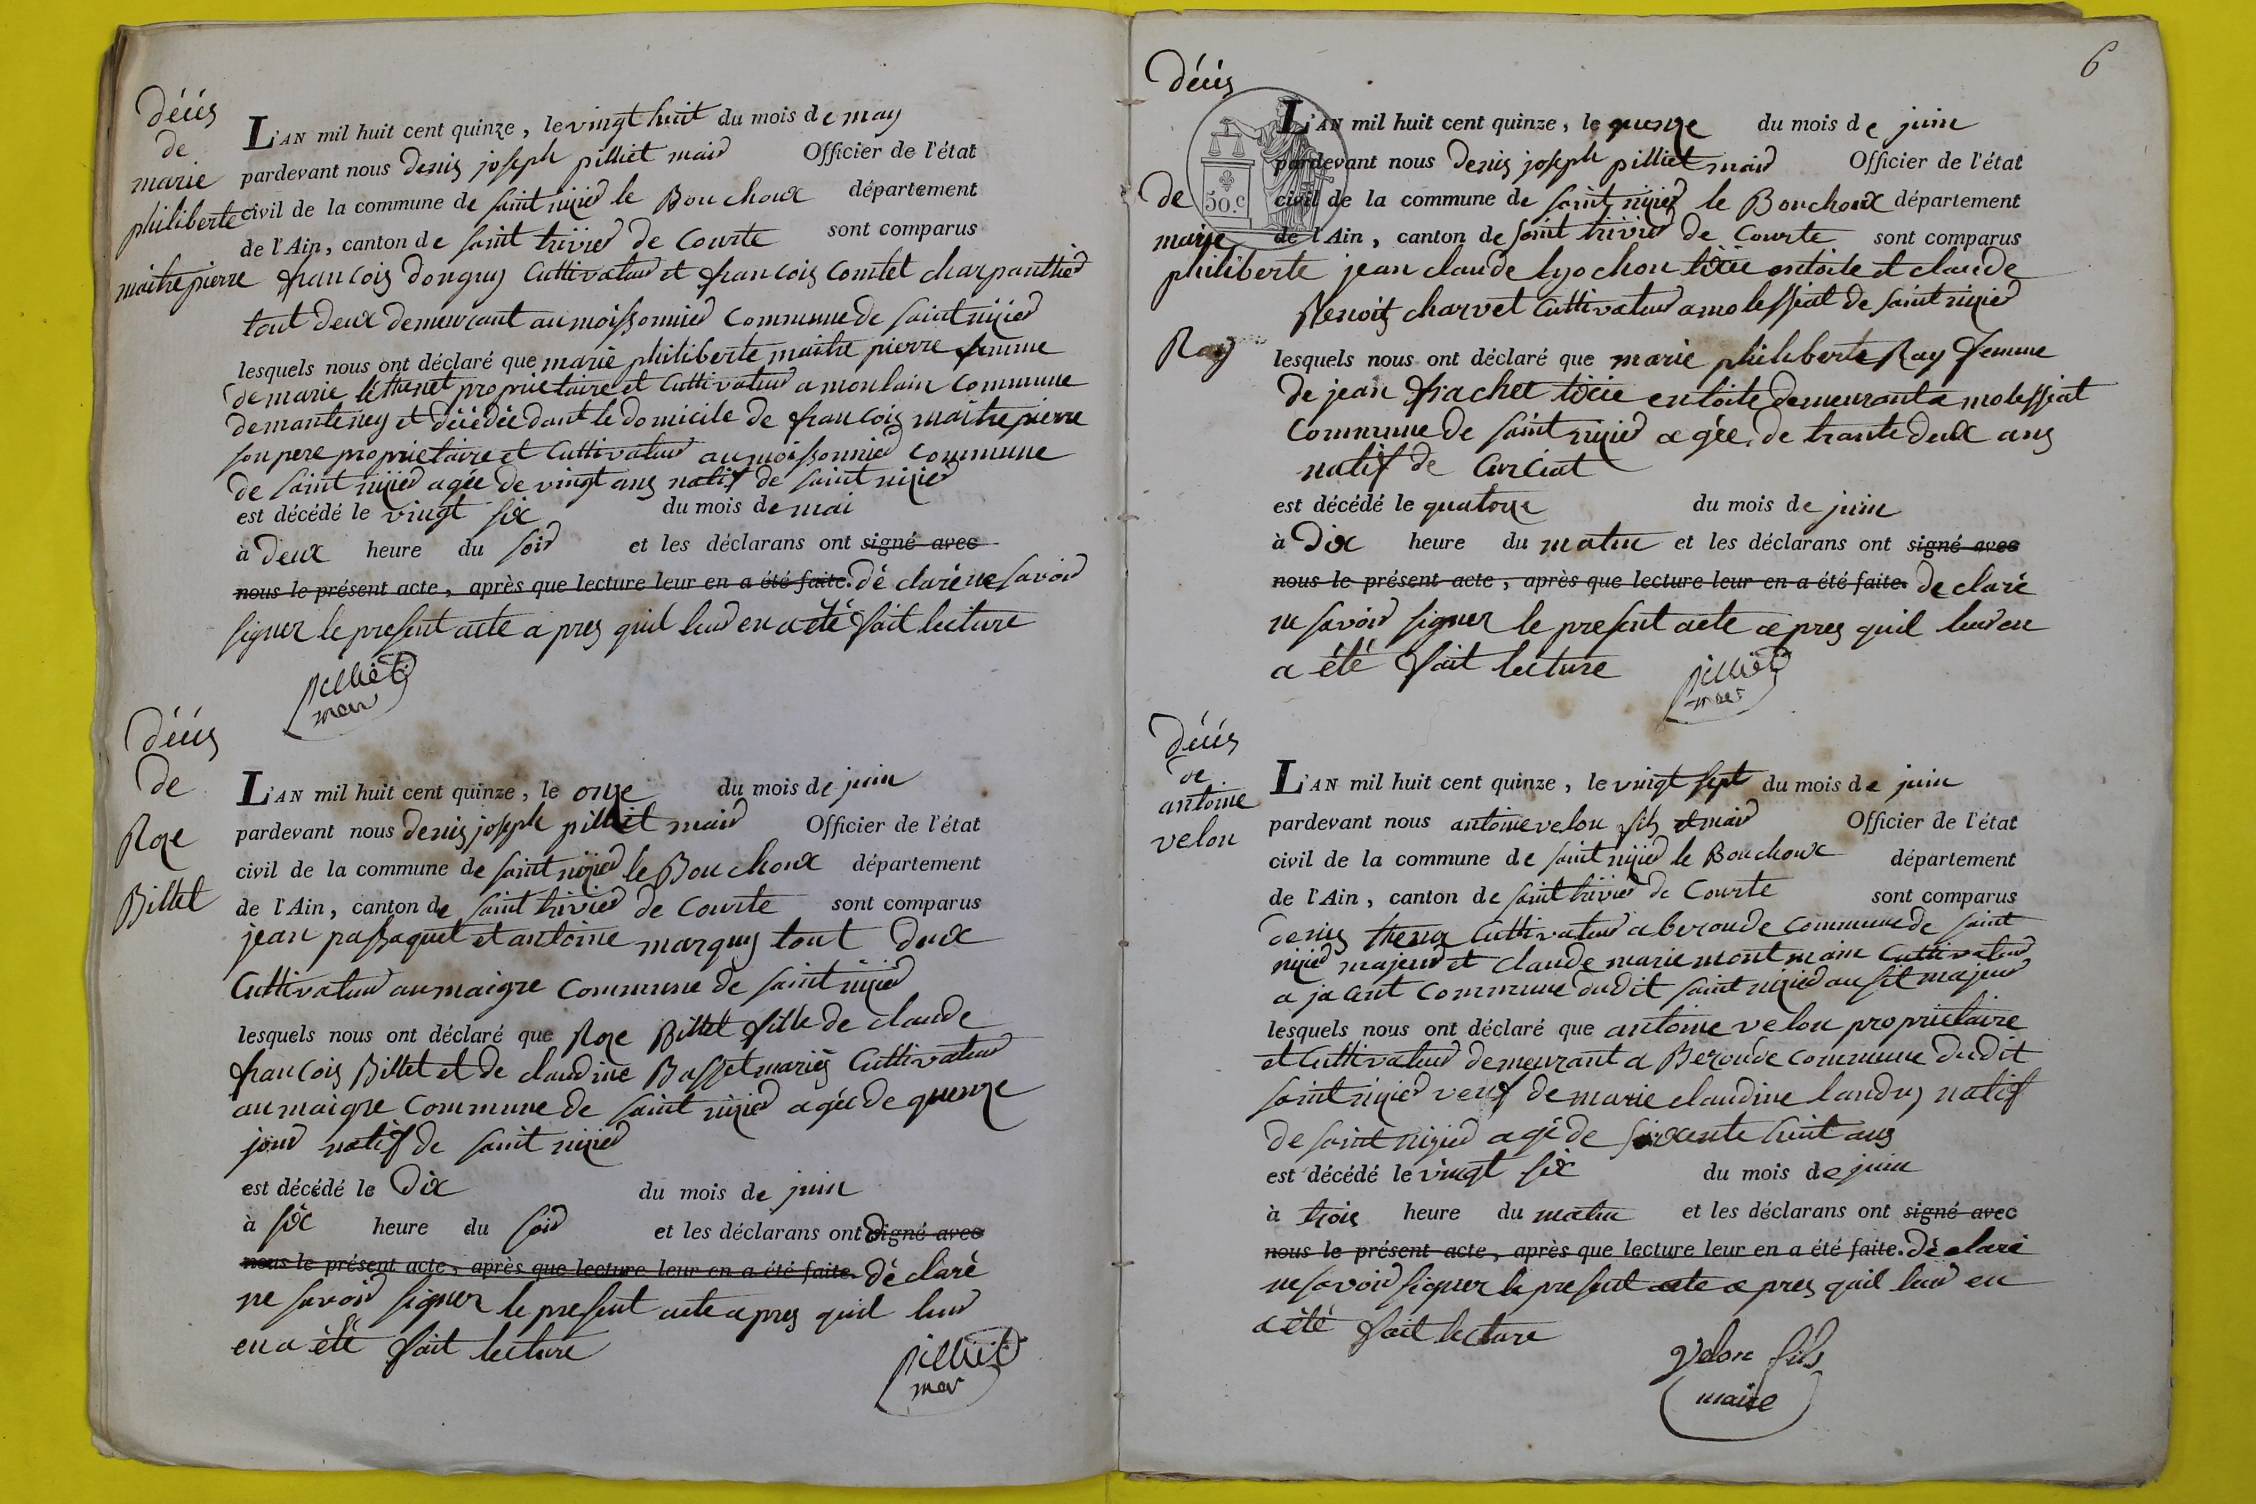 décés
de
marie
philiberte
maitre pierre
L'AN mil huit cent quinze, le vingt huit du mois de may
pardevant nous denis joseph pilliet maire Officier de l'état
civil de la commune de saint nizier le Bouchoux département
de l'Ain, canton de saint trivier de Courte sont comparus
francois donguy Cultivateur et francois Comtet charpanthier
tout deux demeurant au moissonnier Commune de saint nizier
lesquels nous ont déclaré que marie philiberte maitre pierre femme
de marie lethenet proprietaire et Cultivateur a monlain Commune
de manteney et décédée dant le domicile de francois maitre pierre
son pere proprietaire et Cultivateur au moissonnier Commune
de saint nizier agée de vingt ans natif de saint nizier
est décédé le vingt six du mois de mai
à deux heure du soir et les déclarans ont signé avec
nous le présent acte, après que lecture leur en a été faite. dé claré ne savoir
signer le present acte a pres quil leur en a été fait lecture
pilliet
mair
décés
de
Roze
Billet
L'AN mil huit cent quinze, le onze du mois de juin
pardevant nous denis joseph pilliet maire Officier de l'état
civil de la commune de saint nizier le Bouchoux département
de l'Ain, canton de saint trivier de Courte sont comparus
jean passaquet et antoine marguy tout deux
Cultivateur au maigre Commune de saint nizier
lesquels nous ont déclaré que Roze Billet fille de claude
francois Billet et de claudine Basset mariés Cultivateur
au maigre Commune de saint nizier agée de quenze
jour natif de saint nizier
est décédé le dix du mois de juin
à six heure du soir et les déclarans ont signé avec
nous le présent acte, après que lecture leur en a été faite. dé claré
ne savoir signer le present acte a pres quil leur
en a été fait lecture
pilliet
mair
6
décés
de
marie
philiberte
Ray
50.c
L'AN mil huit cent quinze, le quenze du mois de juin
pardevant nous denis joseph pilliet maire Officier de l'état
civil de la commune de saint nizier le Bouchoux département
de l'Ain, canton de saint trivier de Courte sont comparus
jean claude hyochon tixie entoite et claude
Benoit charvet Cultivateur a molessiat de saint nizier
lesquels nous ont déclaré que marie philiberte Ray femme
de jean frachet tixie entoite demeurant a molessiat
Commune de saint nizier agée de trante deux ans
natif de Curciat
est décédé le quatorze du mois de juin
à dix heure du matin et les déclarans ont signé avec
nous le présent acte, après que lecture leur en a été faite. de claré
ne savoir signer le present acte a pres quil leur en
a été fait lecture
pilliet
mair
décés
de
antoine
velon
L'AN mil huit cent quinze, le vingt sept du mois de juin
pardevant nous antoine velon fils et maire Officier de l'état
civil de la commune de saint nizier le Bouchoux département
de l'Ain, canton de saint trivier de Courte sont comparus
denis Cultivateur a beroude Commune de saint
nizier majeur et claude marie mont main Cultivateur
a jacent Commune dudit saint nizier ausit majeur
lesquels nous ont déclaré que antoine velon proprietaire
et Cultivateur demeurant a Beroude Commune dudit
saint nizier veuf de marie claudine landry natif
de saint nizier agé de soixente huit ans
est décédé le vingt six du mois de juin
à trois heure du matin et les déclarans ont signé avec
nous le présent acte, après que lecture leur en a été faite. dé claré
ne savoir signer le present acte a pres quil leur en
a été fait lecture
Velon fils
maire